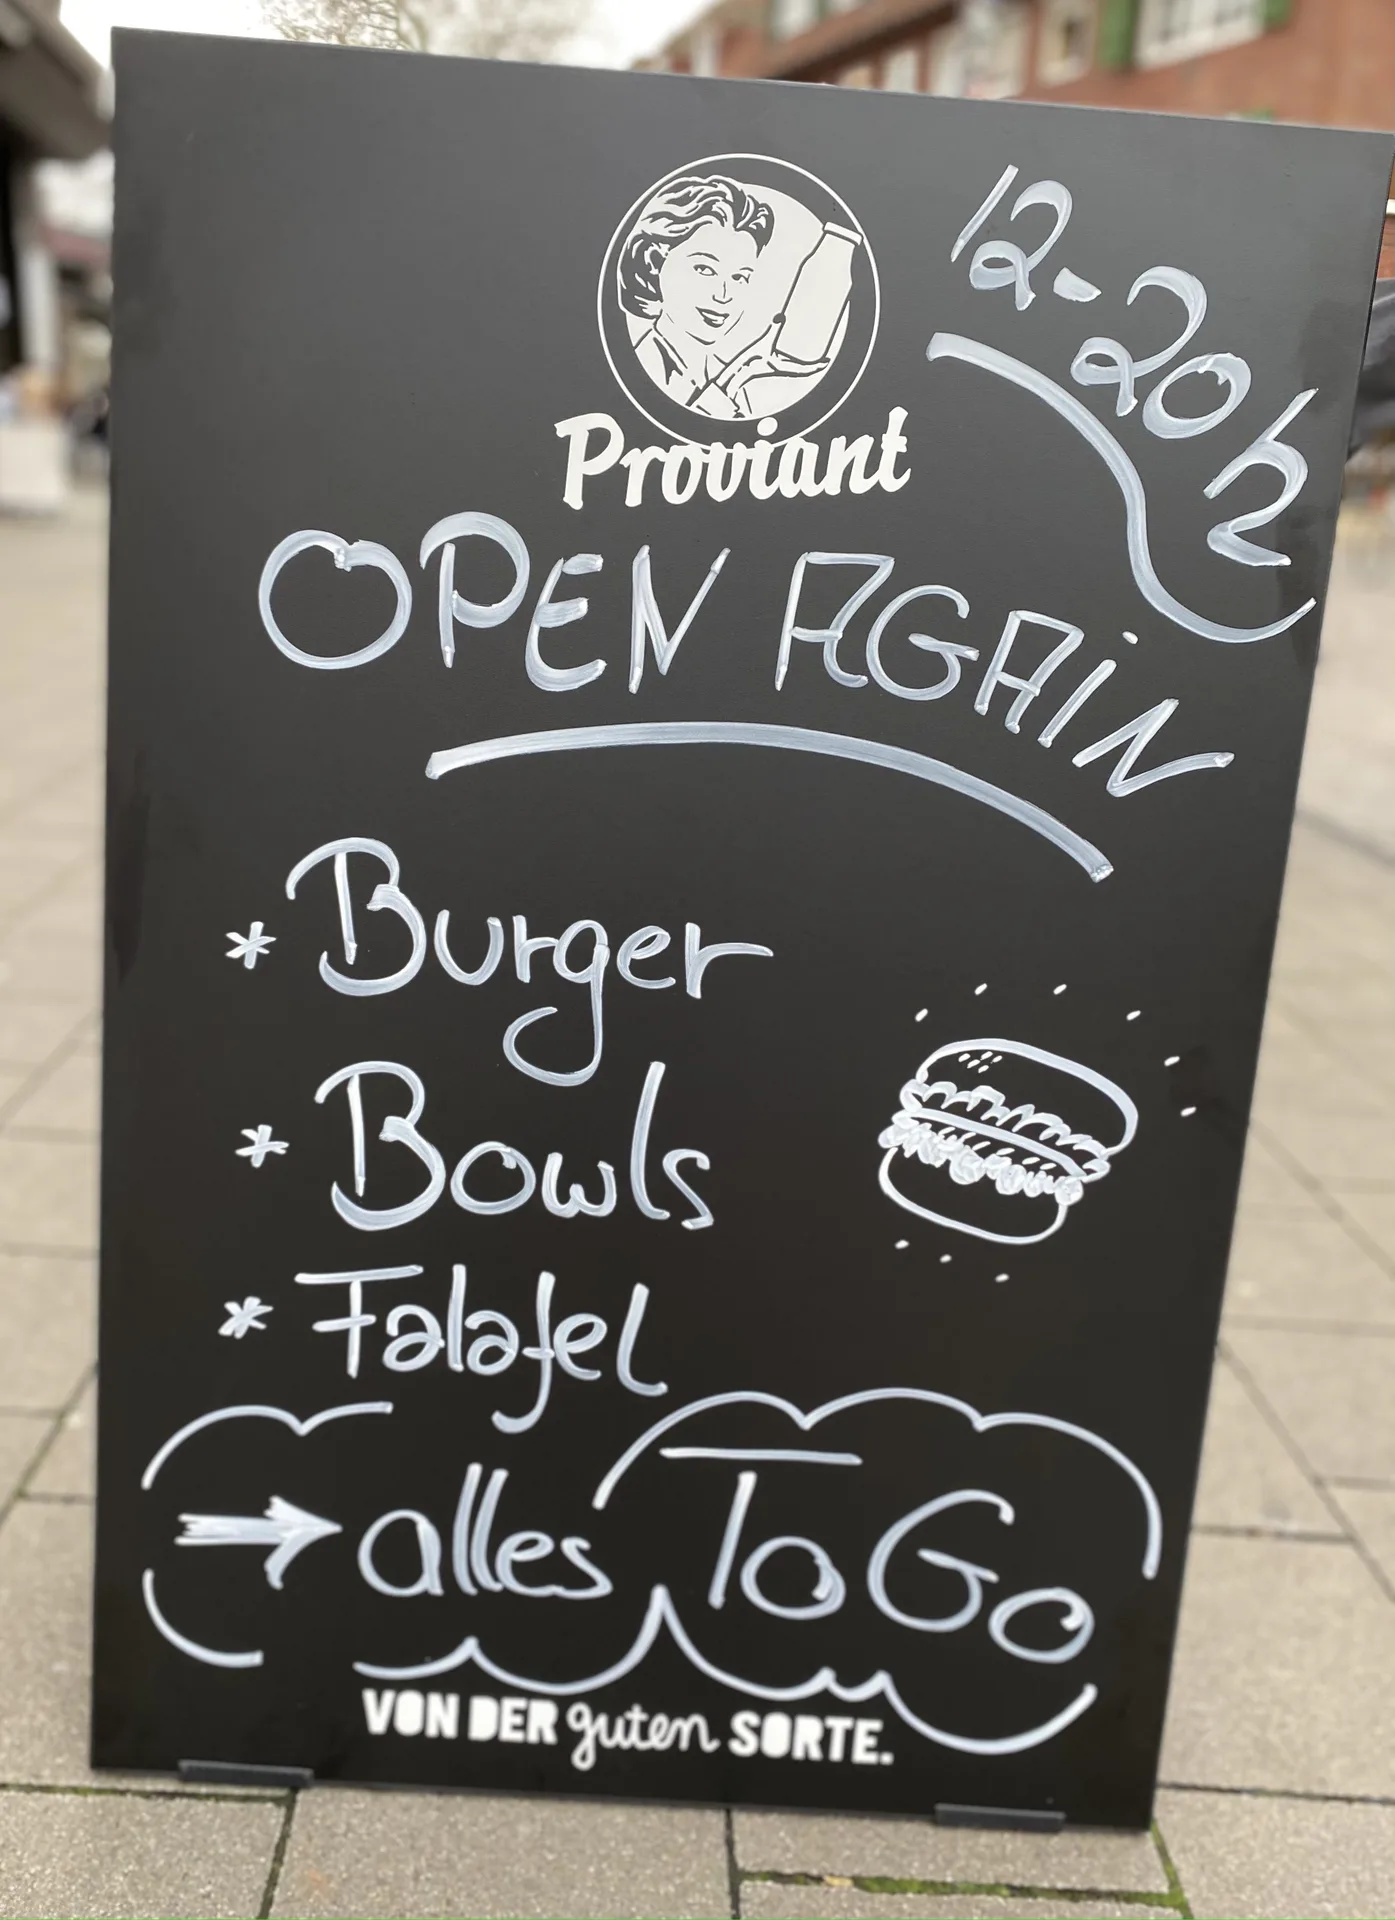 12-20h
Proviant
OPEN AGAIN
* Burger
* Bowls
* Falafel
→ alles To Go
VON DER guten SORTE.